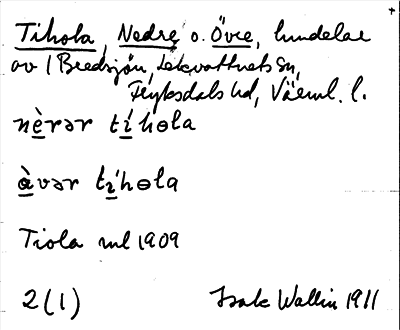 Tihola, Nedre o. Övre, hundelar
av 1 Bredsjön, Lekvattnets sn,
Fryksdals hd, Värml. l.
nèrər tíhɵla
àvər tíhɵla
Tiola ml 1909
2(1) Isak Wallin 1911